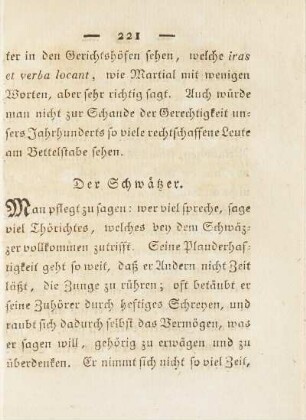 — 221 —
ter in den Gerichtshöfen sehen, welche iras
et verba locant, wie Martial mit wenigen
Worten, aber sehr richtig sagt. Auch würde
man nicht zur Schande der Gerechtigkeit un-
sers Jahrhunderts so viele rechtschaffene Leute
am Bettelstabe sehen.
Der Schwätzer.
Man pflegt zu sagen: wer viel spreche, sage
viel Thörichtes, welches bey dem Schwäz-
zer vollkommen zutrifft. Seine Plauderhaf-
tigkeit geht so weit, daß er Andern nicht Zeit
läßt, die Zunge zu rühren; oft betäubt er
seine Zuhörer durch heftiges Schreyen, und
raubt sich dadurch selbst das Vermögen, was
er sagen will, gehörig zu erwägen und zu
überdenken. Er nimmt sich nicht so viel Zeit,